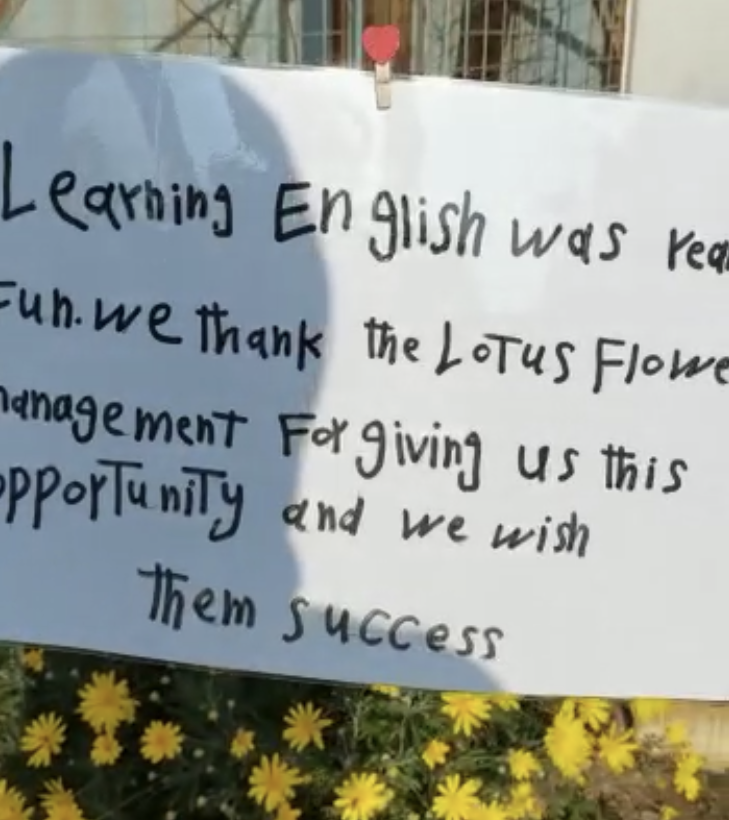 Learning English was rea
Fun. we thank the LoTus Flowe
management For giving us this
opporTuniTy and we wish
Them success